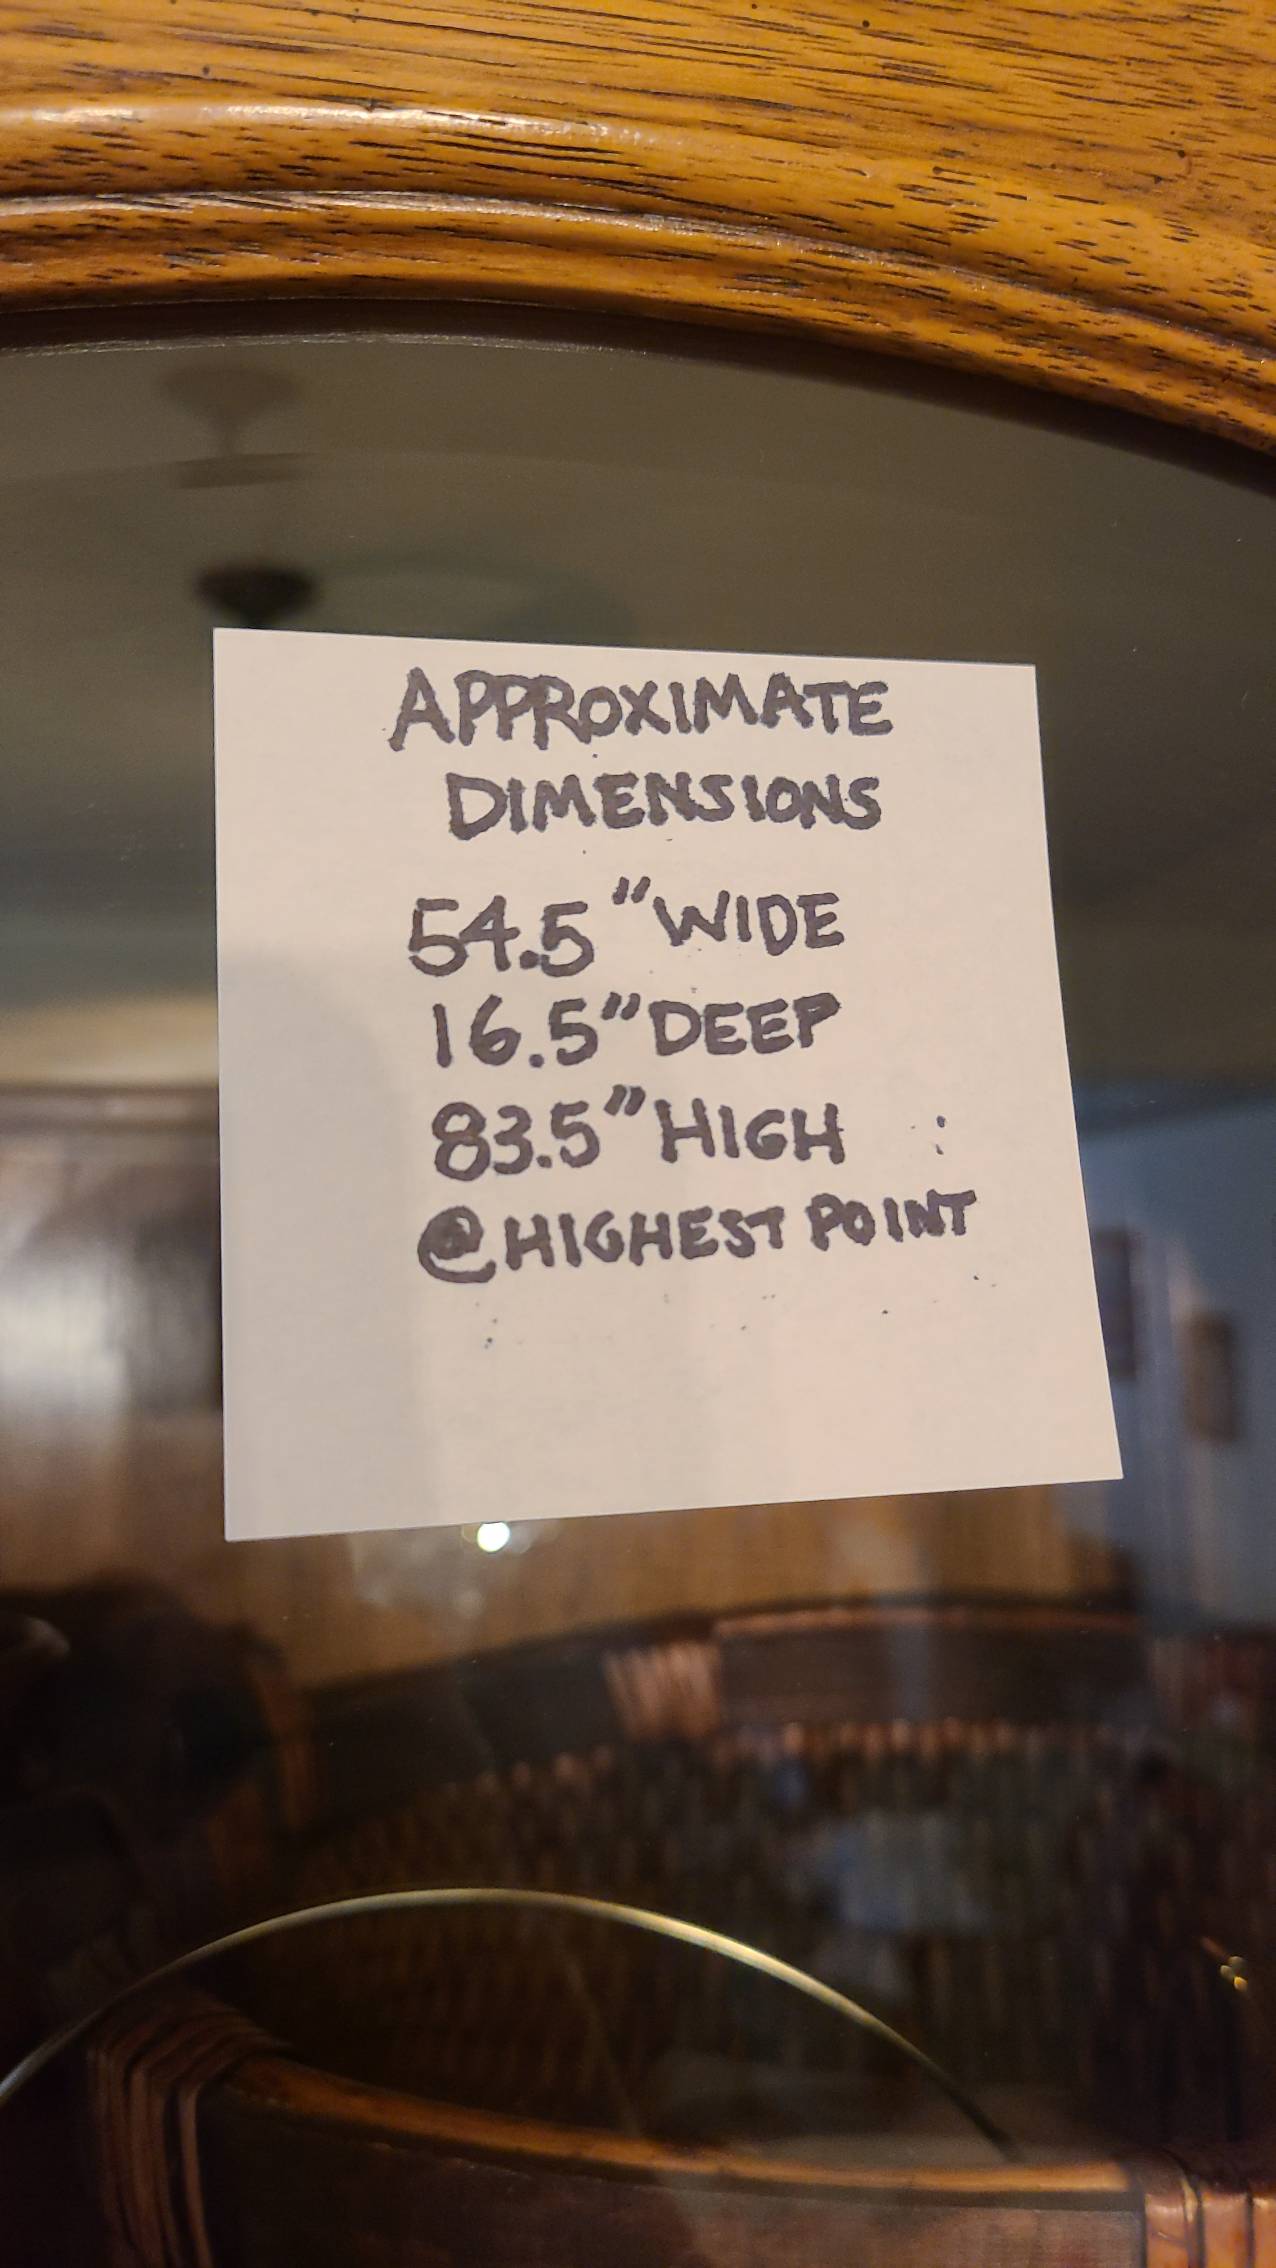 APPROXIMATE
DIMENSIONS
54.5" WIDE
16.5" DEEP
83.5" HIGH
@ HIGHEST POINT